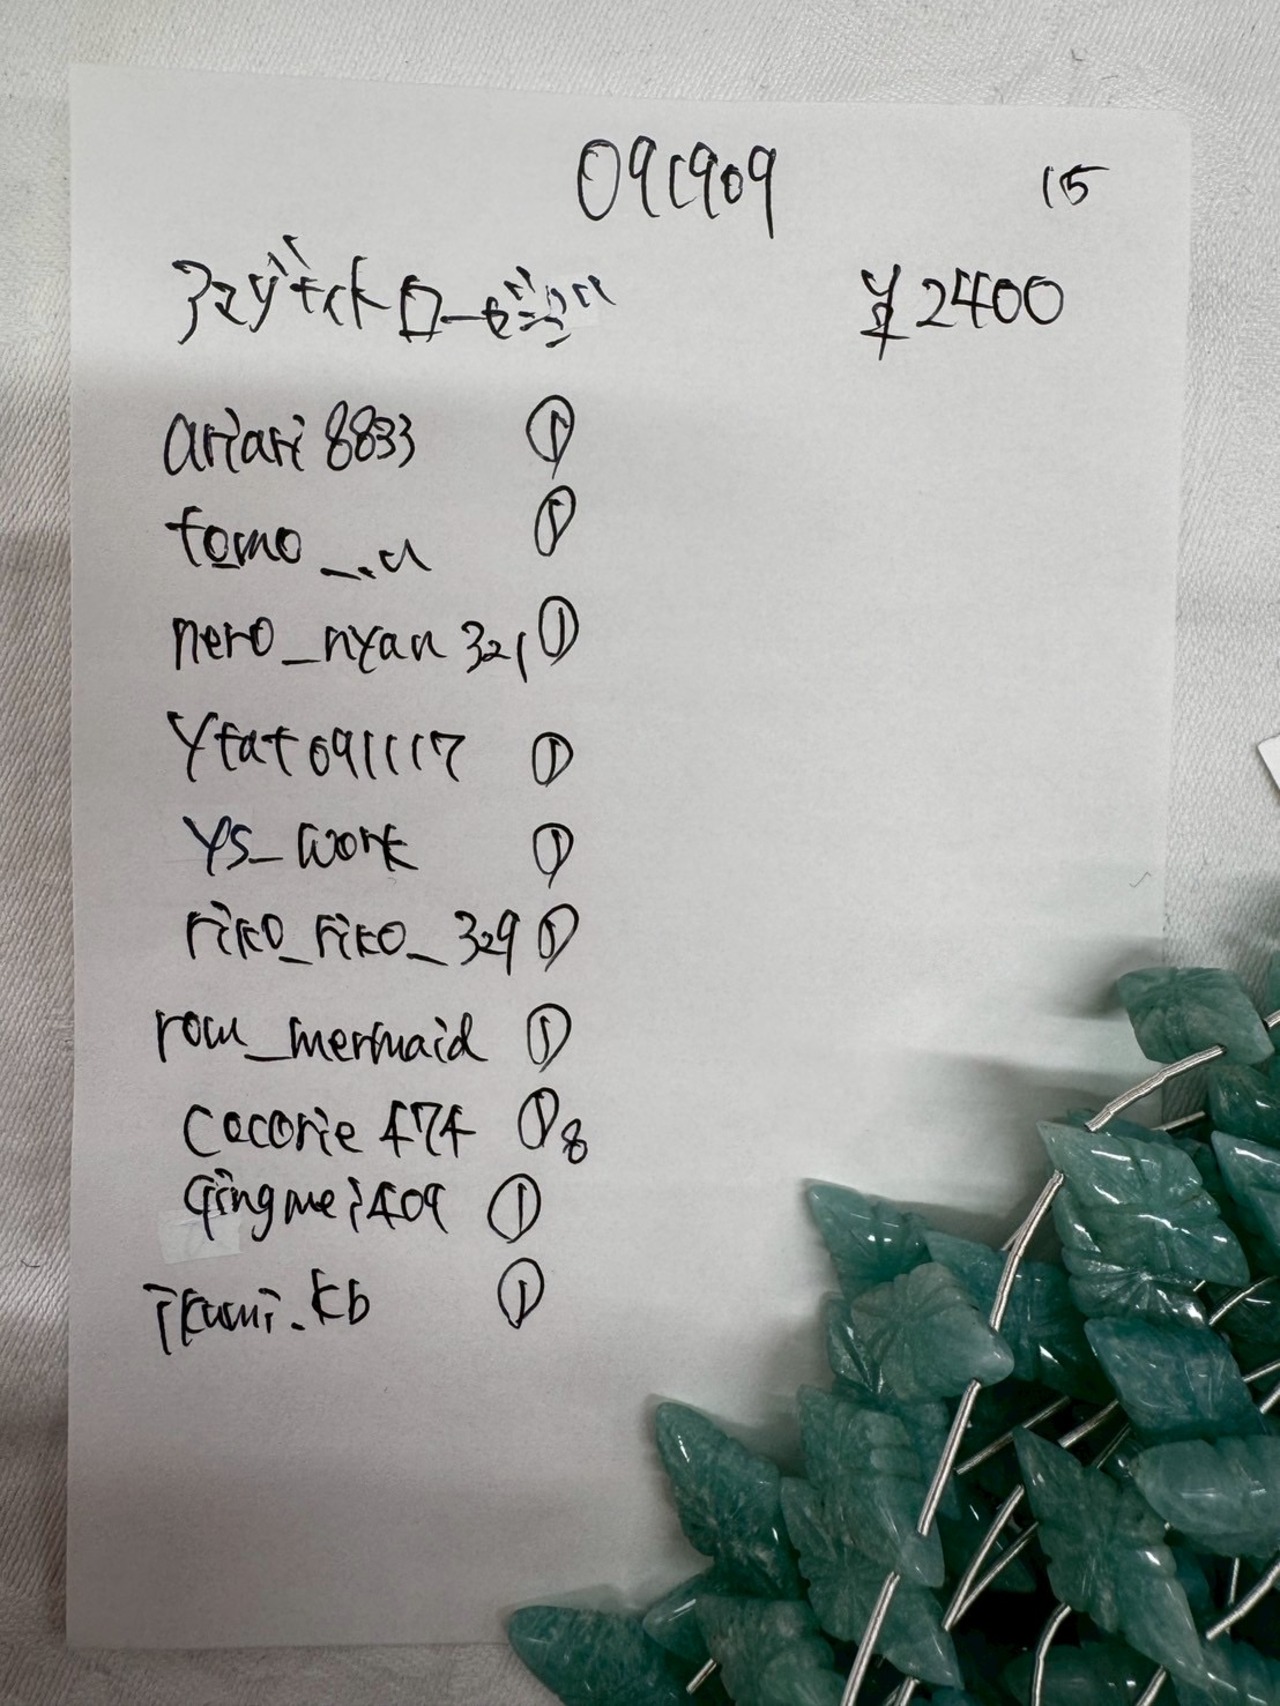 091909 15
¥2400
ariari8833 ①
tomo__.u ①
nero_nyan321 ①
ytat091117 ①
ys_work ①
riko_riko_329 ①
rou_mermaid ①
cocorie474 ① 8
qingmei409 ①
ikumi.kb ①